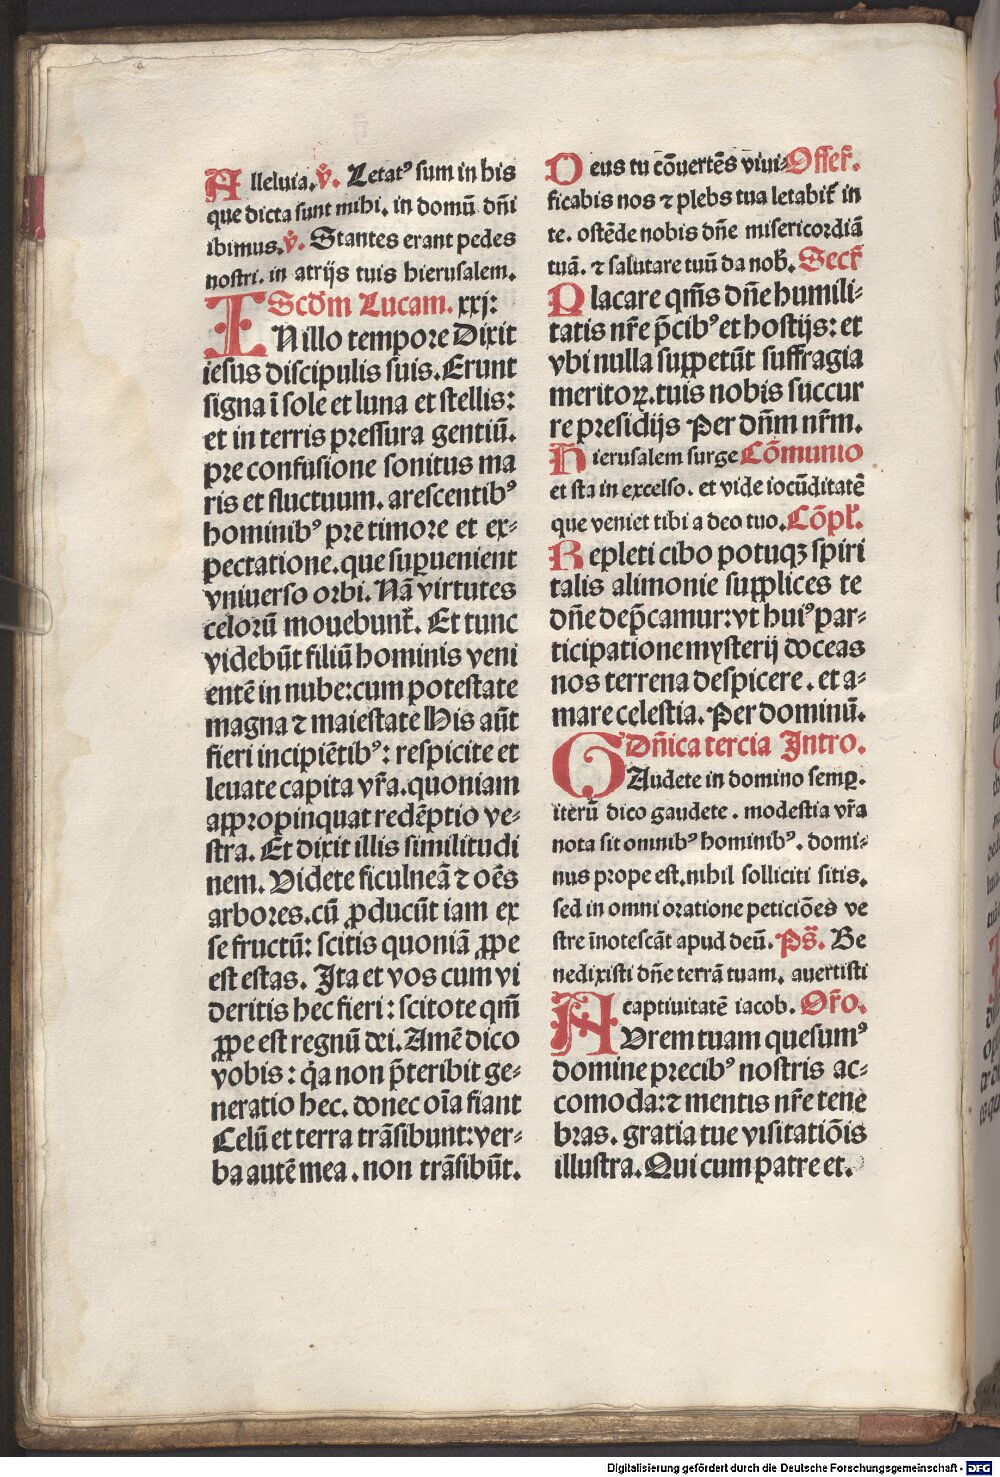 Alleluia. v̄. Letatꝰ sum in his
que dicta sunt mihi. in domū dn̄i
ibimus. v̄. Stantes erant pedes
nostri. in atrijs tuis hierusalem.
Scd̄m Lucam. xxj:
IN illo tempore Dixit
iesus discipulis suis. Erunt
signa ī sole et luna et stellis:
et in terris pressura gentiū.
pre confusione sonitus ma
ris et fluctuum. arescentibꝰ
hominibꝰ prē timore et ex⸗
pectatione. que suꝑuenient
vniuerso orbi. Nā virtutes
celorū mouebunt᷑. Et tunc
videbūt filiū hominis veni
entē in nube: cum potestate
magna ⁊ maiestate His aūt
fieri incipiētibꝰ: respicite et
leuate capita vr̄a. quoniam
appropinquat redēptio ve⸗
stra. Et dixit illis similitudi
nem. Videte ficulneā ⁊ oēs
arbores. cū ꝓducūt iam ex
se fructū: scitis quoniā ꝓpe
est estas. Ita et vos cum vi
deritis hec fieri: scitote qm̄
ꝓpe est regnū dei. Amē dico
vobis: q̄a non p̄teribit ge⸗
neratio hec. donec oīa fiant
Celū et terra trāsibunt: ver⸗
ba autē mea. non trāsibūt.
Deus tu cōuertēs viui⸗ Offer̄.
ficabis nos ⁊ plebs tua letabit᷑ in
te. ostēde nobis dn̄e misericordiā
tuā. ⁊ salutare tuū da nob̄. Secr̄
Placare qm̄s dn̄e humili⸗
tatis nr̄e p̄cibꝰ et hostijs: et
vbi nulla suppetūt suffragia
meritoꝝ. tuis nobis succur
re presidijs Per dn̄m nr̄m.
Hierusalem surge Cōmunio
et sta in excelso. et vide iocūditatē
que veniet tibi a deo tuo. Cōpl̄.
Repleti cibo potuqꝫ spiri
talis alimonie supplices te
dn̄e dep̄camur: vt huiꝰ par⸗
ticipatione mysterij doceas
nos terrena despicere. et a⸗
mare celestia. Per dominū.
Dn̄ica tercia Intro.
GAudete in domino semꝑ.
iterū dico gaudete. modestia vr̄a
nota sit omnibꝰ hominibꝰ. domi⸗
nus prope est. nihil solliciti sitis.
sed in omni oratione peticiōes ve
stre īnotescāt apud deū. Ps̄. Be
nedixisti dn̄e terrā tuam. auertisti
captiuitatē iacob. Or̄o.
AVrem tuam quesumꝰ
domine precibꝰ nostris ac⸗
comoda: ⁊ mentis nr̄e tene
bras. gratia tue visitatiōis
illustra. Qui cum patre et.
Digitalisierung gefördert durch die Deutsche Forschungsgemeinschaft - DFG